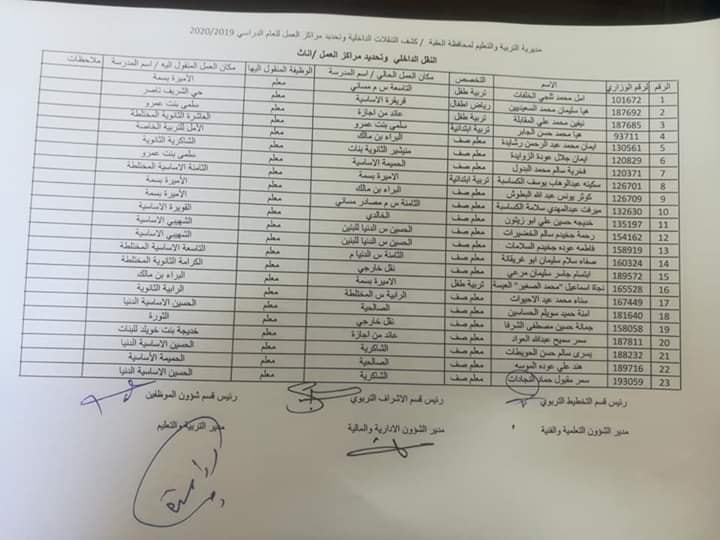 مديرية التربية والتعليم لمحافظة العقبة / كشف التنقلات الداخلية وتحديد مراكز العمل للعام الدراسي 2020/2019
النقل الداخلي وتحديد مراكز العمل /اناث
الرقم الرقم الوزاري الاسم التخصص مكان العمل الحالي / اسم المدرسة الوظيفة المنقول اليها مكان العمل المنقول اليه / اسم المدرسة ملاحظات
1 101672 امل محمد تلجي الخلفات تربية طفل التاسعة س م مسائي معلم الاميرة بسمة
2 187692 هيا سليمان محمد السعيديين رياض اطفال قريقرة الاساسية معلم حي الشريف ناصر
3 187685 نيفين محمد علي المقابلة تربية طفل عائد من اجازة معلم سلمى بنت عمرو
4 93711 هيا محمد حسن الجابر تربية ابتدائية سلمى بنت عمرو معلم العاشرة الثانوية المختلطة
5 130561 ايمان محمد عبد الرحمن رشايدة معلم صف البراء بن مالك معلم الأمل للتربية الخاصة
6 120829 ايمان جلال عودة الزوايدة معلم صف منيشير الثانوية بنات معلم الشاكرية الثانوية
7 120371 فخرية سالم محمد البدول معلم صف الحميمة الاساسية معلم سلمى بنت عمرو
8 126701 سكينه عبدالوهاب يوسف الكساسبة تربية ابتدائية الاميرة بسمة معلم الثامنة الاساسية المختلطة
9 126709 كوثر يونس عبد الله البطوش معلم صف البراء بن مالك معلم الأميرة بسمة
10 132630 ميرفت عبدالمهدي سلامة الكساسبة معلم صف الثامنة س م مصادر مسائي معلم الأميرة بسمة
11 135197 خديجه حسين علي ابو زيتون معلم صف الخالدي معلم القويرة الاساسية
12 154162 رحمة جخيدم سالم الخضيرات معلم صف الحسين س الدنيا للبنين معلم الشهيبي الاساسية
13 158919 فاطمه عوده جخيدم السلامات معلم صف الحسين س الدنيا للبنين معلم الشهيبي الاساسية
14 160324 صفاء سلام سليمان ابو غريقانة معلم صف الثامنة س الدنيا م معلم التاسعة الاساسية المختلطة
15 189572 ابتسام جاسر سليمان مرعي معلم صف نقل خارجي معلم الكرامة الثانوية المختلطة
16 165528 نجاة اسماعيل "محمد الصغير" العيسة تربية طفل الاميرة بسمة معلم البراء بن مالك
17 167449 سناء محمد عيد الاحيوات معلم صف الرابية س المختلطة معلم الرابية الثانوية
18 181640 امنة حميد سويلم الحساسين معلم صف الصالحية معلم الحسين الاساسية الدنيا
19 158058 جمانة حسين مصطفى الشرفا معلم صف نقل خارجي معلم الثورة
20 187811 سمر سميح عبدالله العواد معلم صف عائد من اجازة معلم خديجة بنت خويلد للبنات
21 188232 يسرى سالم حسن الحويطات معلم صف الشاكرية معلم الحسين الاساسية الدنيا
22 189716 هند علي عوده الموسه معلم صف الصالحية معلم الحميمة الأساسية
23 193059 سمر مقبول حماد النجادات معلم صف الشاكرية معلم الحسين الاساسية الدنيا
رئيس قسم التخطيط التربوي رئيس قسم الاشراف التربوي رئيس قسم شؤون الموظفين
مدير الشؤون التعلمية والفنية مدير الشؤون الادارية والمالية مدير التربية والتعليم